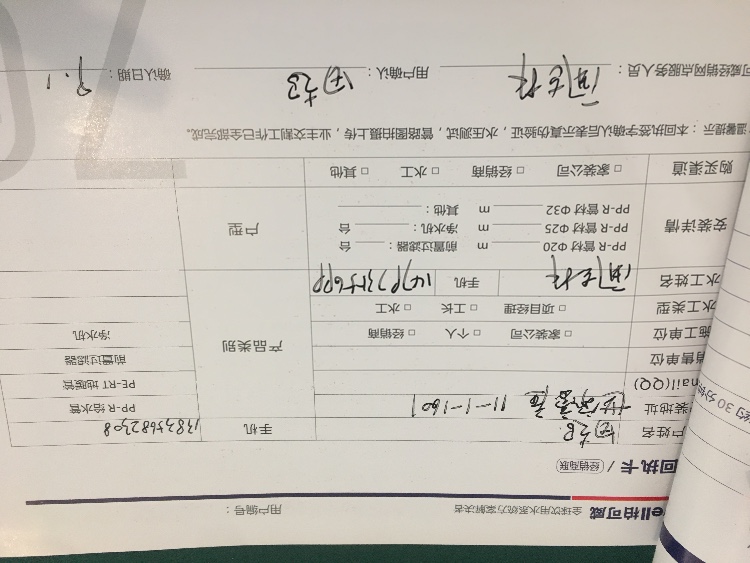 ell柏可威 全球饮用水系统方案解决者 用户编号：
回执卡 / 经销商联
户姓名 手机 13835682308
装地址 11-1-1601 PP-R给水管
mail(QQ) PE-RT地暖管
销售单位 产品类别 前置过滤器
施工单位 □ 家装公司 □ 个人 □ 经销商 净水机
水工类型 □ 项目经理 □ 工长 □ 水工
水工姓名 手机
安装详情 PP-R 管材 Φ20 m 前置过滤器： 台 户型
PP-R 管材 Φ25 m 净水机： 台
PP-R 管材 Φ32 m 其他：
购买渠道 □ 家装公司 □ 经销商 □ 水工 □ 其他
温馨提示：本回执签字确认后表示真伪验证，水压测试，管路图拍摄上传，业主交割工作已全部完成。
可威经销网点服务人员： 用户确认： 确认日期： 9.1
约30分钟